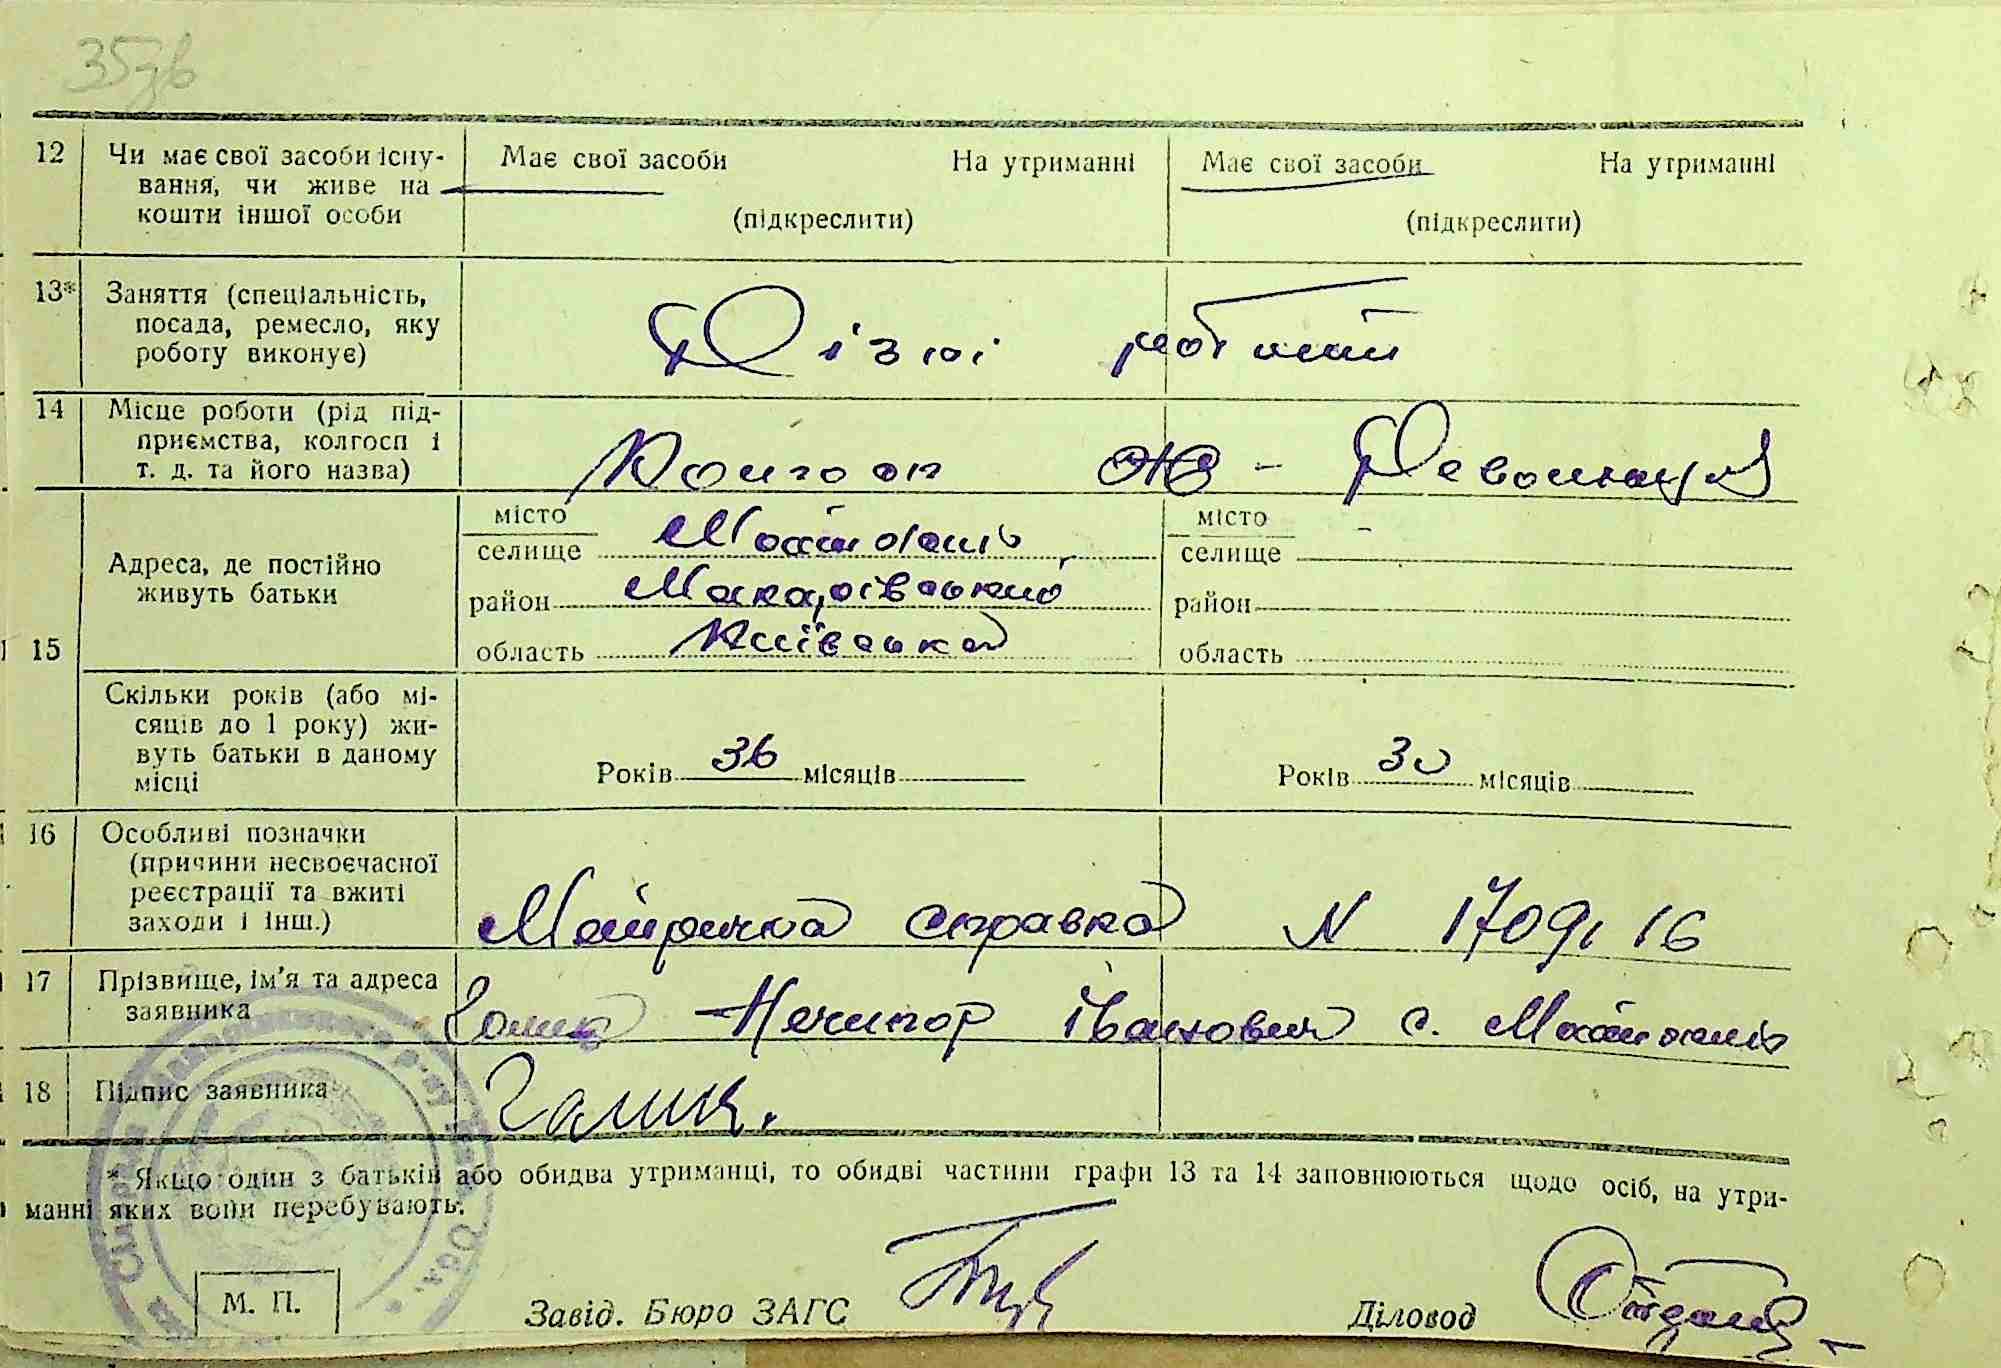 35зв
12 Чи має свої засоби існу- Має свої засоби На утриманні Має свої засоби На утриманні
вання, чи живе на
кошти іншої особи (підкреслити) (підкреслити)
13* Заняття (спеціальність,
посада, ремесло, яку Різні роботи
роботу виконує)
14 Місце роботи (рід під-
приємства, колгосп і Колгосп Жов-Революція
т. д. та його назва)
15 Адреса, де постійно
живуть батьки
місто
селище
район Макарівський
область Київська
місто
селище
район
область
Скільки років (або мі-
сяців до 1 року) жи-
вуть батьки в даному
місці
Років 36 місяців Років 30 місяців
16 Особливі позначки
(причини несвоєчасної
реєстрації та вжиті
заходи і інш.)
справка N 1709, 16
17 Прізвище, ім'я та адреса
заявника
Галич Ничипор Іванович с.
18 Підпис заявника Галич.
* Якщо один з батьків або обидва утриманці, то обидві частини графи 13 та 14 заповнюються щодо осіб, на утри-
манні яких вони перебувають.
М. П. Завід. Бюро ЗАГС Діловод